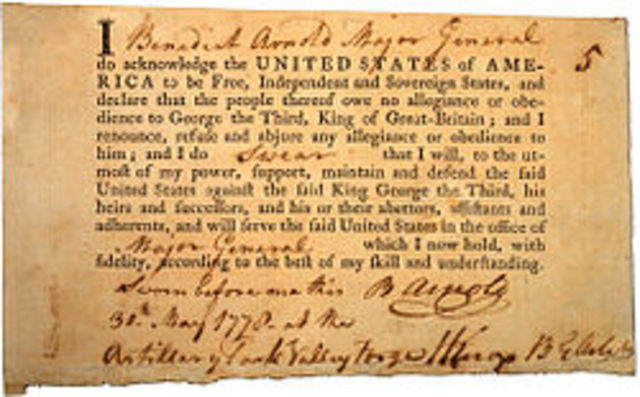 I Benedict Arnold Major General
do acknowledge the UNITED STATES of AME-
RICA to be Free, Independent and Sovereign States, and
declare that the people thereof owe no allegiance or obe-
dience to George the Third, King of Great-Britain; and I
renounce, refuse and abjure any allegiance or obedience to
him; and I do Swear that I will, to the ut-
most of my power, support, maintain and defend the said
United States against the said King George the Third, his
heirs and successors, and his or their abettors, assistants and
adherents, and will serve the said United States in the office of
Major General which I now hold, with
fidelity, according to the best of my skill and understanding.
Sworn before me this B Arnold
30th May 1778 at the
Artillery Park Valley Forge HKnox
5